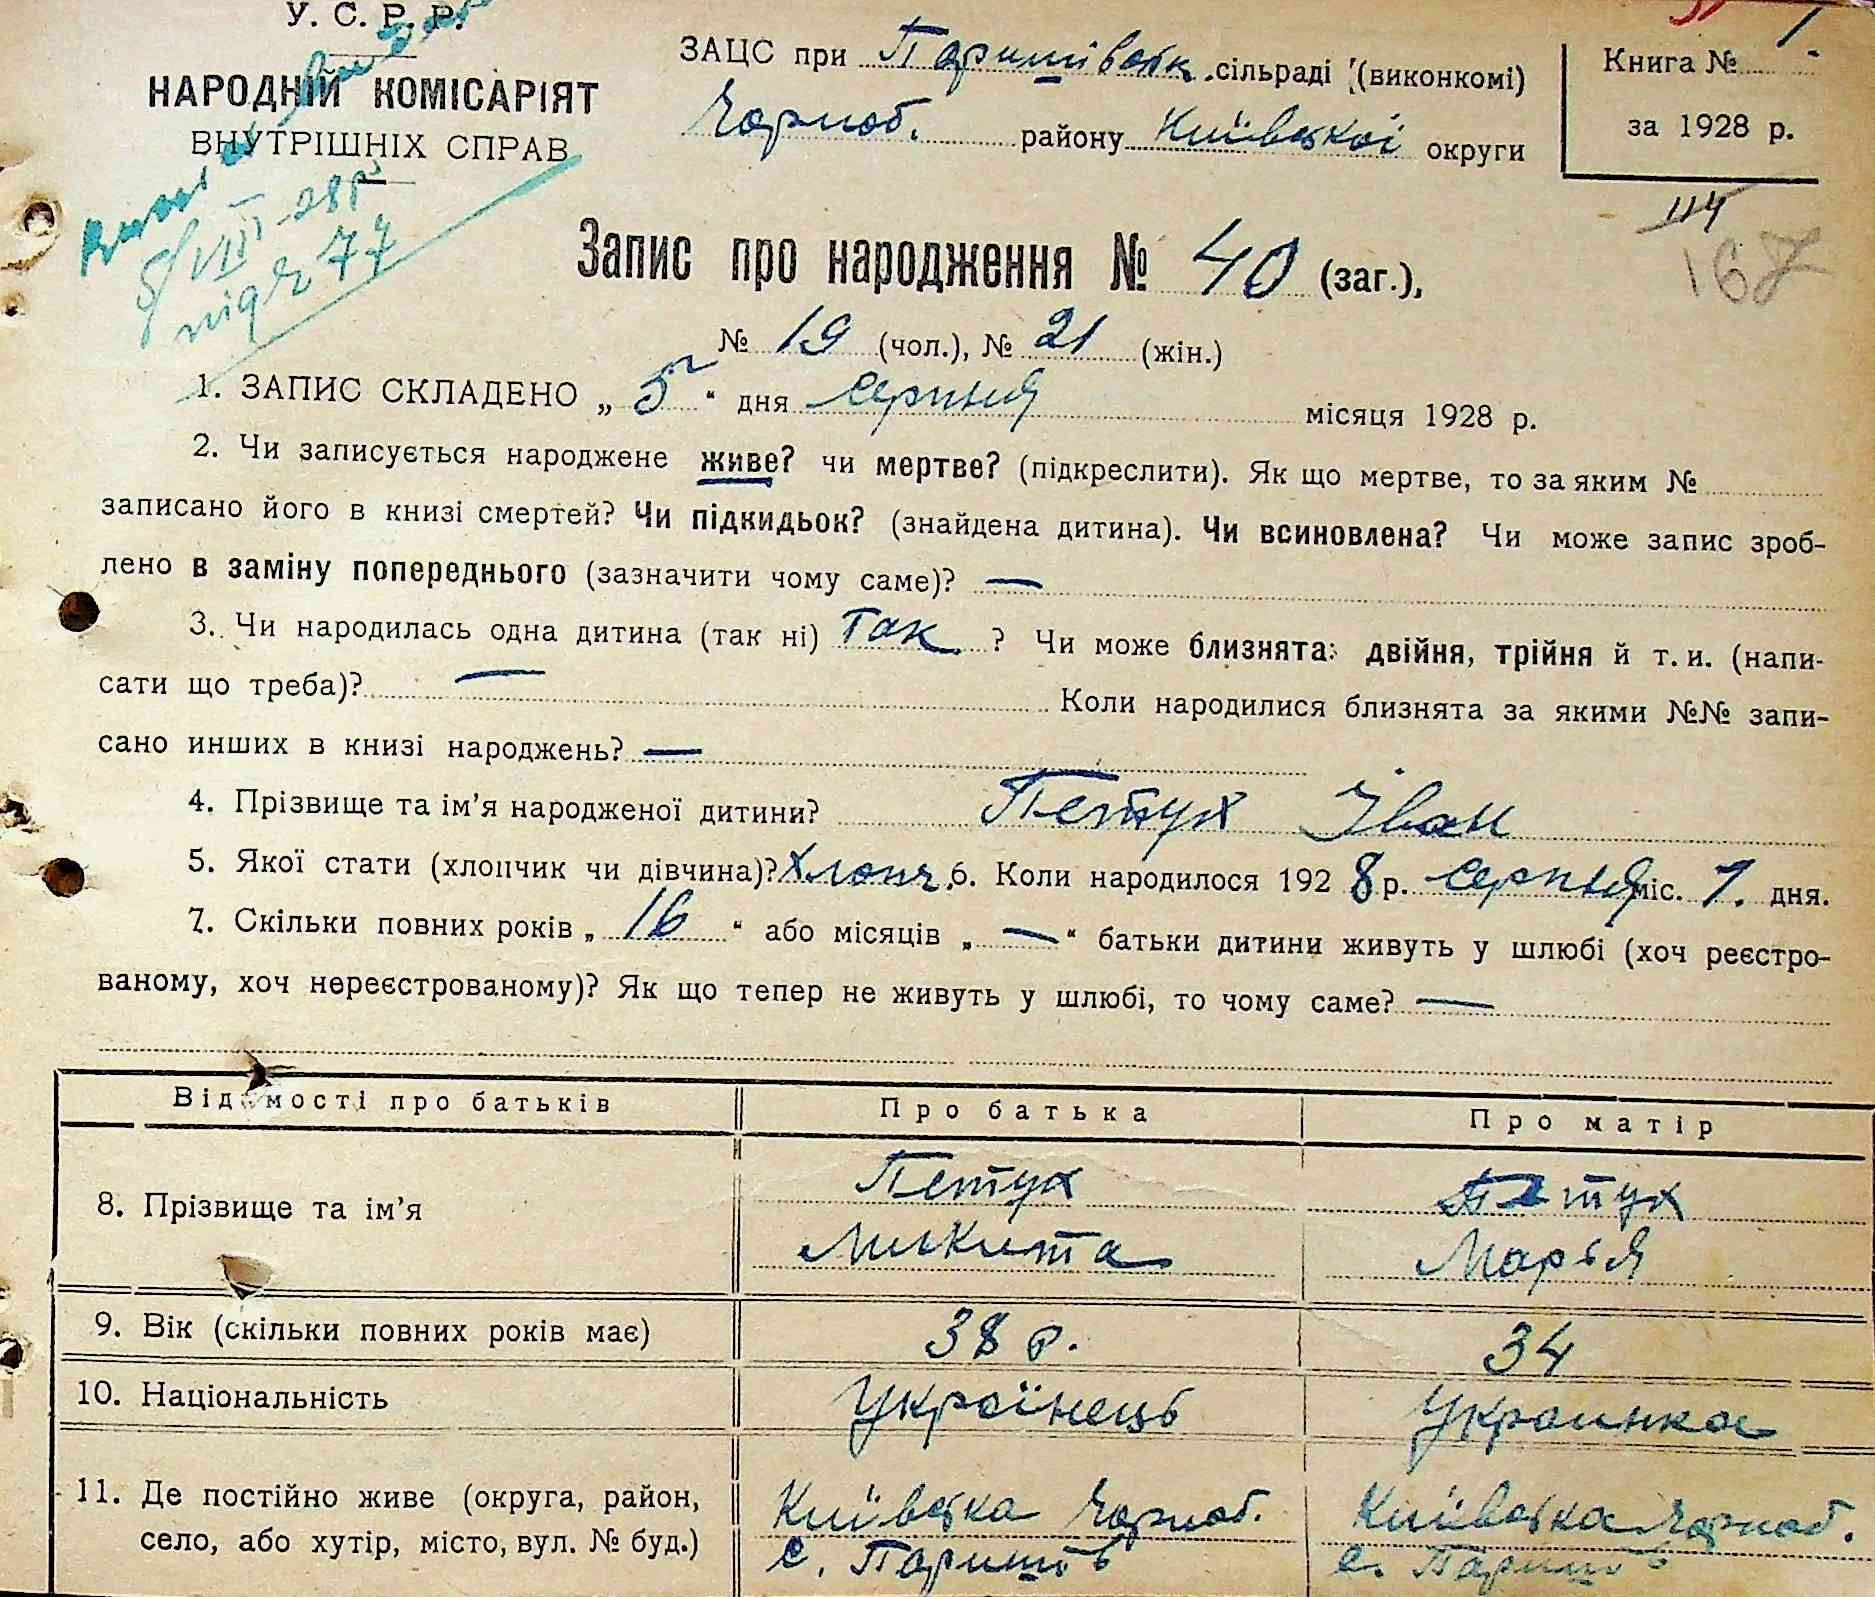 У. С. Р. Р.
НАРОДНІЙ КОМІСАРІЯТ
ВНУТРІШНІХ СПРАВ
5/VIII-28р
під № 77
ЗАЦС при Паришівськ. сільраді (виконкомі)
Чорноб. району Київської округи
Книга № 1.
за 1928 р.
114
167
Запис про народження № 40 (заг.),
№ 19 (чол.), № 21 (жін.)
1. ЗАПИС СКЛАДЕНО „ 5 “ дня серпня місяця 1928 р.
2. Чи записується народжене живе? чи мертве? (підкреслити). Як що мертве, то за яким №
записано його в книзі смертей? Чи підкидьок? (знайдена дитина). Чи всиновлена? Чи може запис зроб-
лено в заміну попереднього (зазначити чому саме)? —
3. Чи народилась одна дитина (так ні) Так ? Чи може близнята: двійня, трійня й т. и. (напи-
сати що треба)? — Коли народилися близнята за якими №№ запи-
сано инших в книзі народжень? —
4. Прізвище та ім’я народженої дитини? Петух Іван
5. Якої стати (хлопчик чи дівчина)? Хлопч. 6. Коли народилося 1928 р. серпня міс. 1. дня.
7. Скільки повних років „ 16 “ або місяців „ — “ батьки дитини живуть у шлюбі (хоч реєстро-
ваному, хоч нереєстрованому)? Як що тепер не живуть у шлюбі, то чому саме? —
Відомості про батьків Про батька Про матір
8. Прізвище та ім’я Петух Петух
Микита Марья
9. Вік (скільки повних років має) 38 р. 34
10. Національність Українець Украинка
11. Де постійно живе (округа, район, Київська Чорноб. Київська Чорноб.
село, або хутір, місто, вул. № буд.) с. Паришів с. Паришів